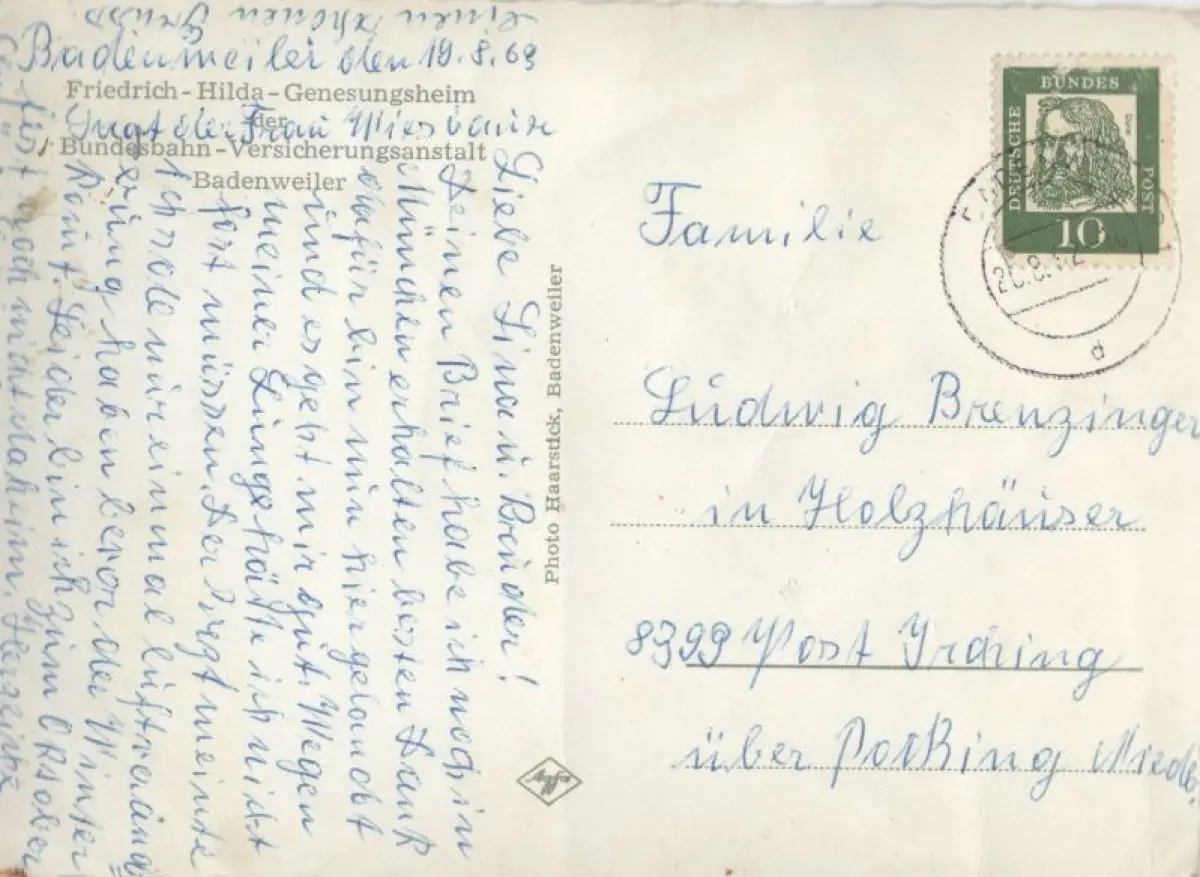 Badenweiler den 19.8.63
Friedrich-Hilda-Genesungsheim
der
Bundesbahn-Versicherungsanstalt
Badenweiler
Liebe Lina u. Brüder!
Deinen Brief habe ich noch in
München erhalten besten Dank
dafür bin nun hier gelandet
und es geht mir gut. Wegen
meiner Lunge hätte ich nicht
fort müssen. Der Arzt meinte
Ich soll nur einmal luftverände
rung haben bevor der Winter
komt. Leider bin ich zum Oktober
fest noch nicht daheim. Herzliche
Grüße
sagt der Frau
einen schönen Gruss
Photo Haarstick, Badenweiler
DEUTSCHE BUNDESPOST
10
Familie
Ludwig Brenzinger
in Holzhäuser
8399 Post Irching
über Pocking Niede
d